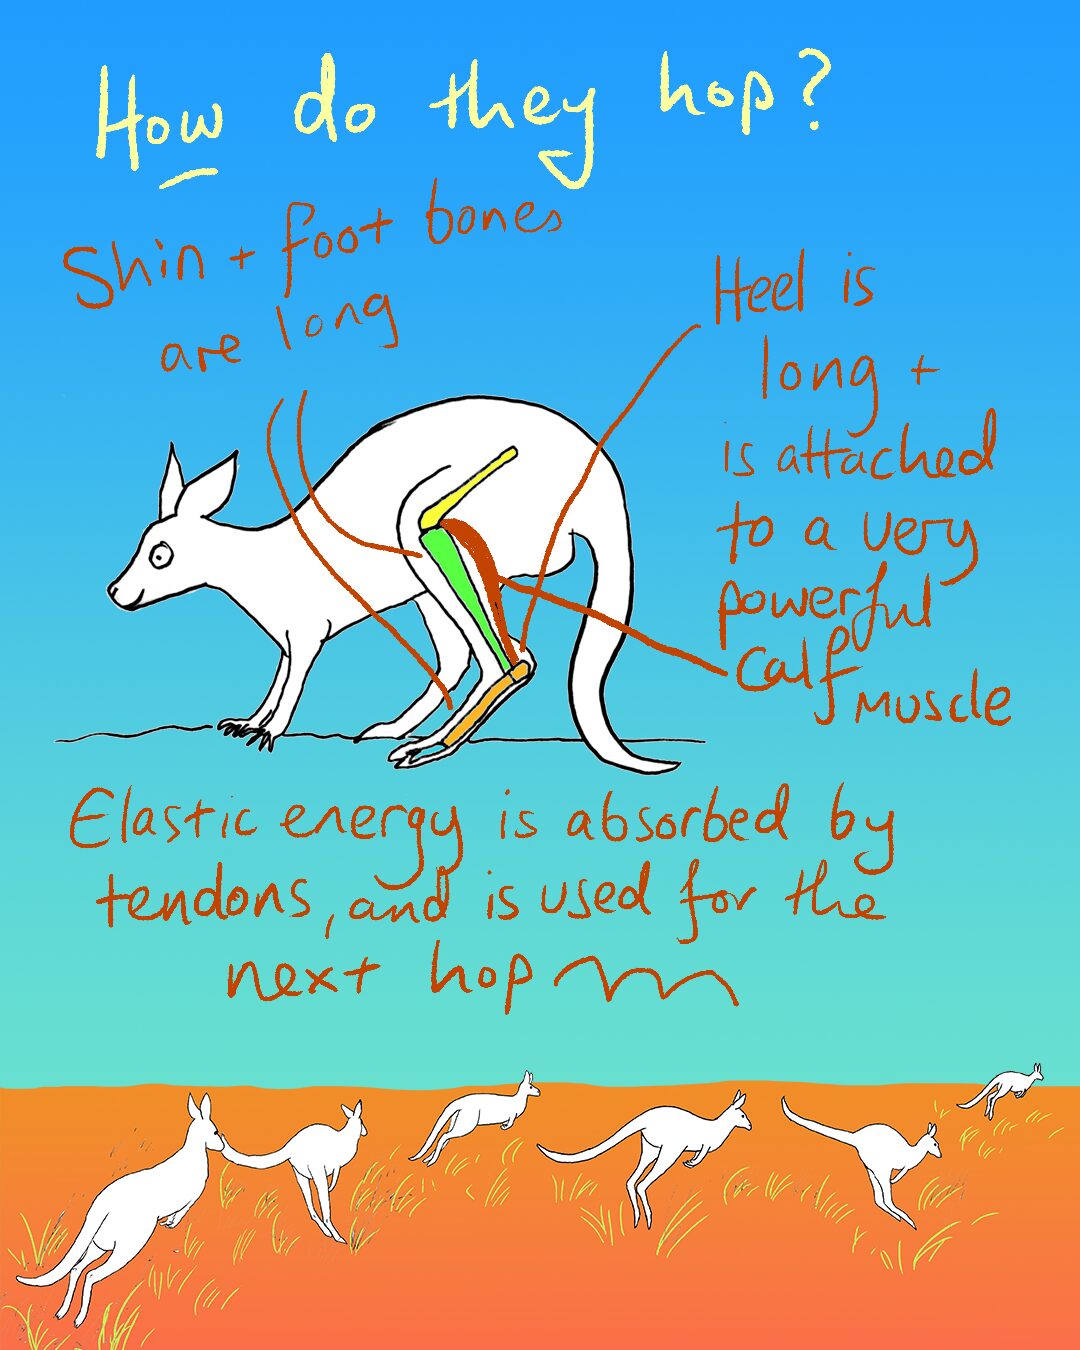 How do they hop?
Shin + foot bones
are long
Heel is
long +
is attached
to a very
powerful
calf muscle
Elastic energy is absorbed by
tendons, and is used for the
next hop